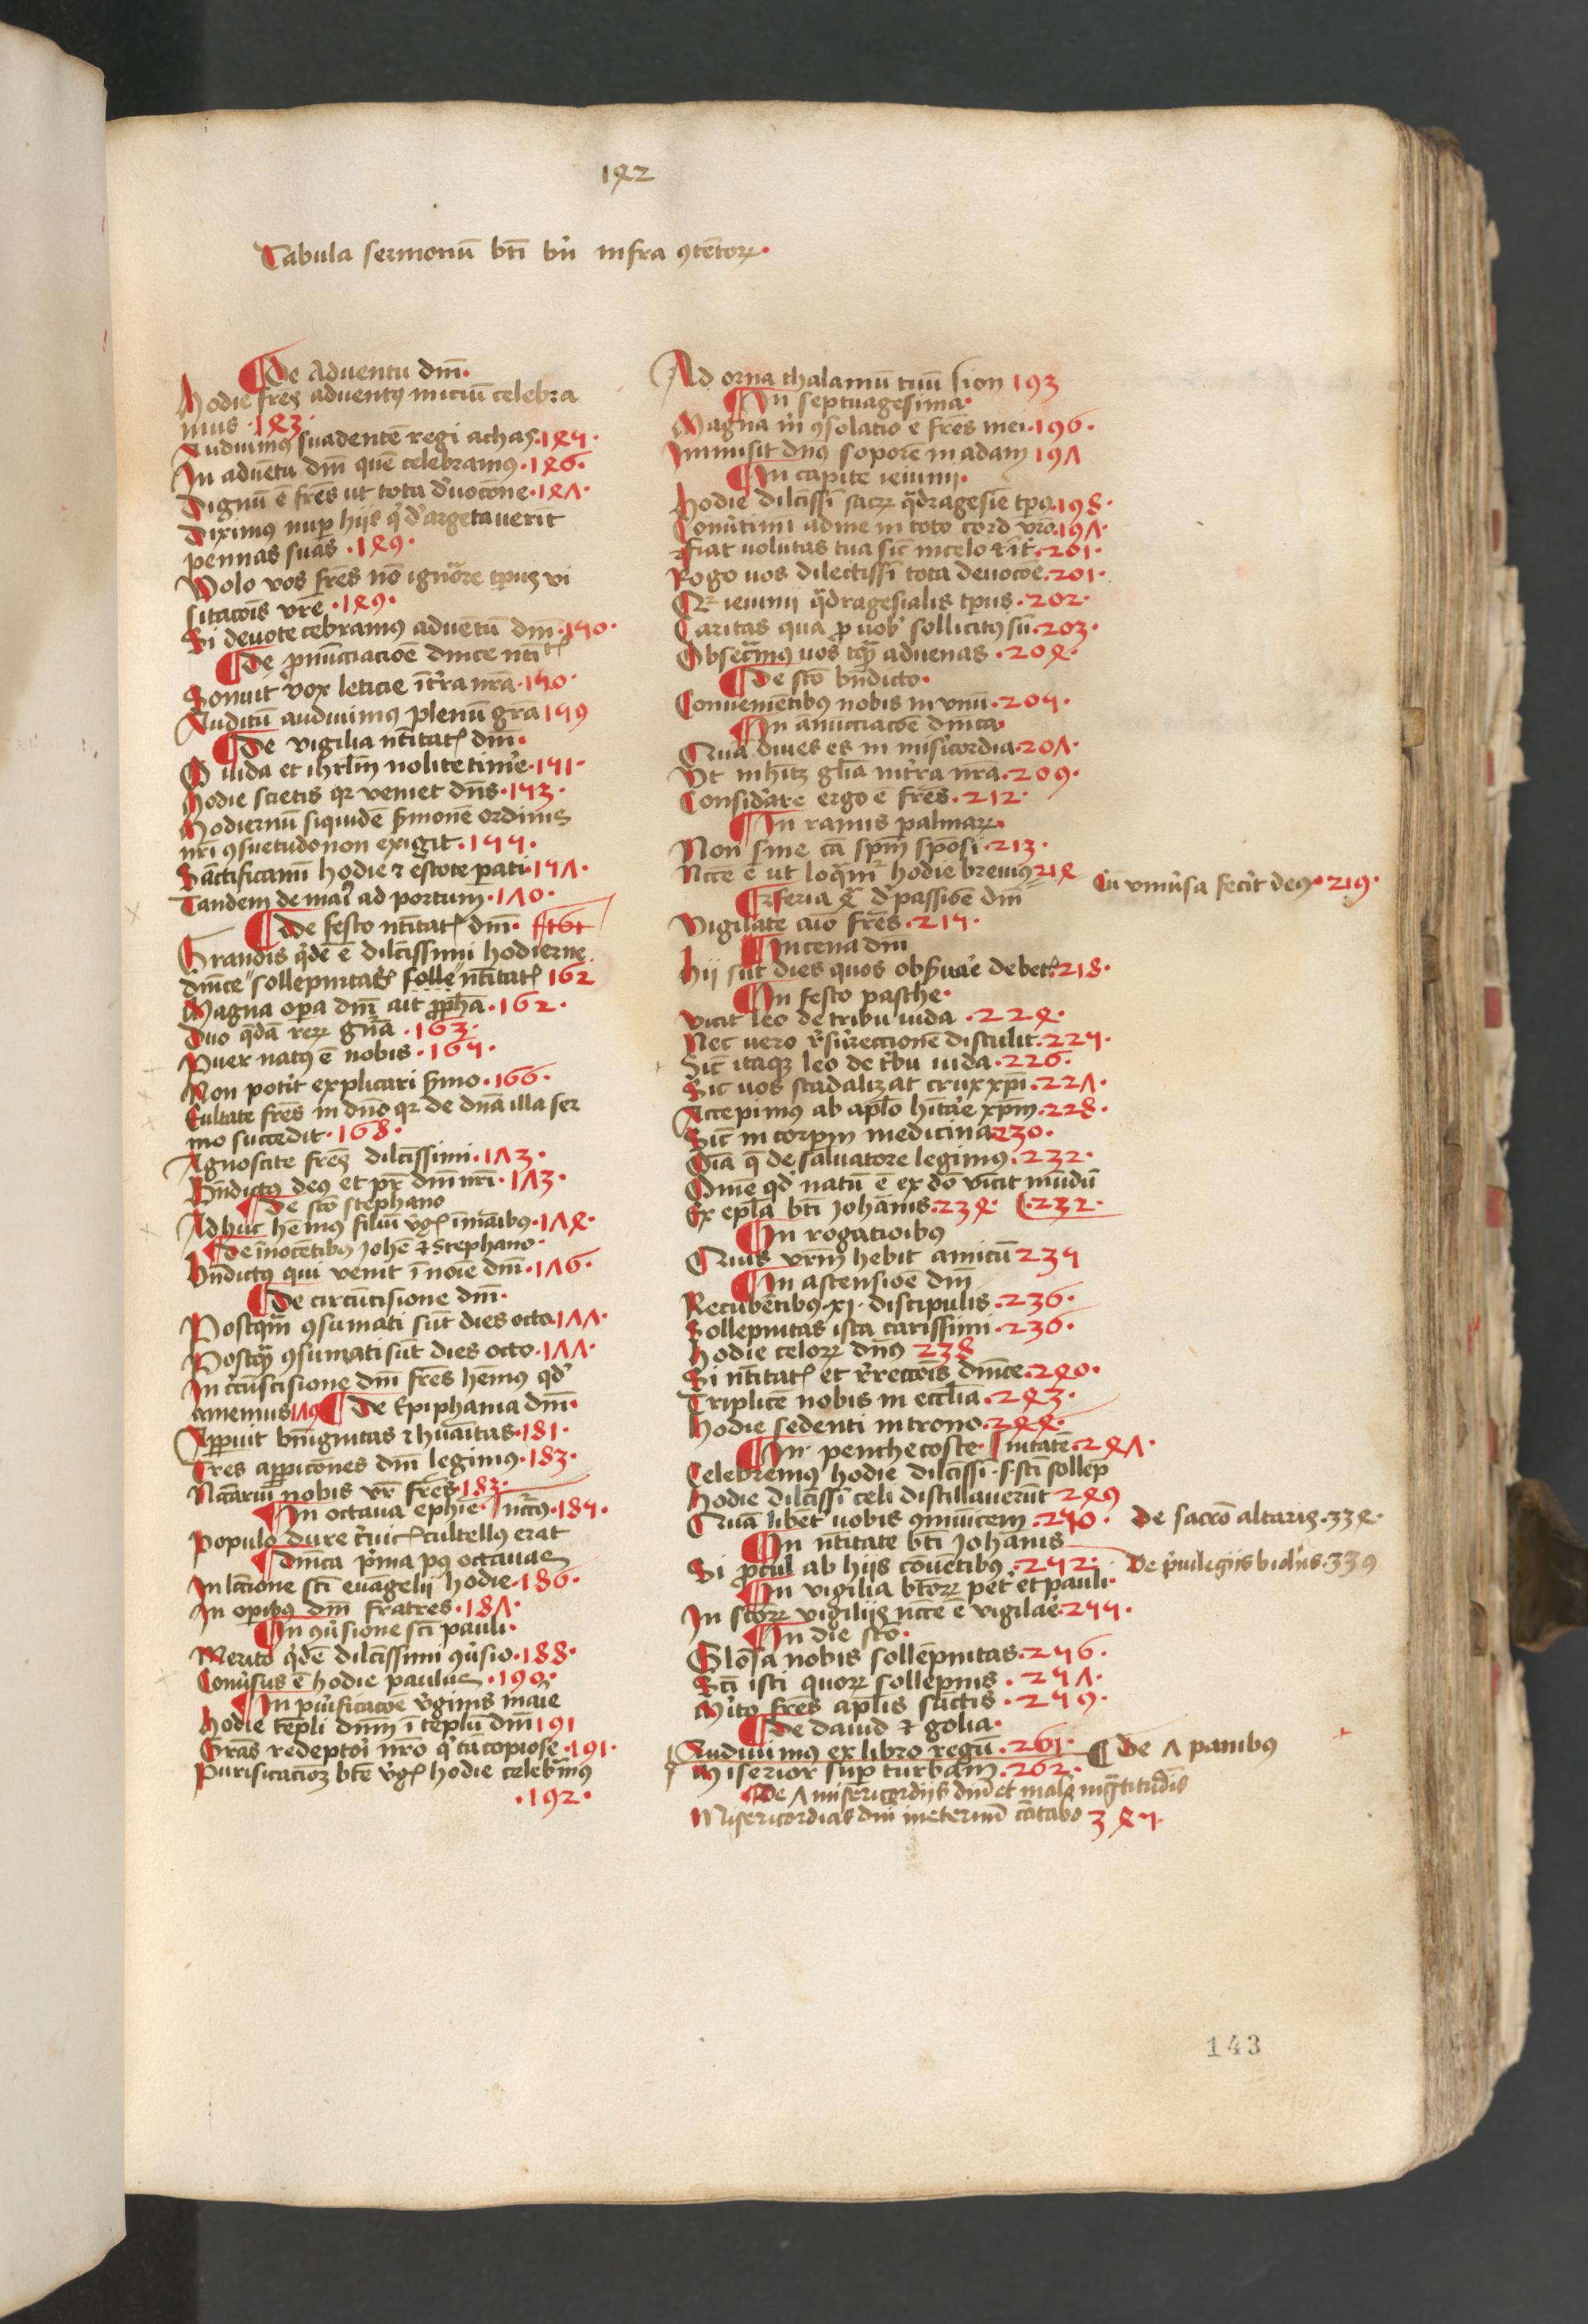 142
Tabula sermonū bti bn̄ infra ꝯtētoꝝ·
¶ De Adventu dm̄·
Hodie fres̄ adventꝰ iniciū celebra
mus ·143·
Audiuimꝰ suadentē regi achaȥ·145·
In adventu dm̄ quē celebramꝰ·146·
Dignū ē fres̄ ut tota d'uocōne·147·
Diximꝰ nup hijs q' d'argētaverit
pennas suas ·149·
Volo vos fres̄ nō ignōre tpus vi
sitacōis vrē ·149·
Si devote cebramꝰ adventū dm̄·150·
¶ De pnūcciacioe dnice nti
Sonuit vox leticie ī tr̄a nrā·150·
Auditū audiuimꝰ plenū grā 159
¶ De vigilia ntītatꝭ dm̄·
O iuda et ihrlm̄ nolite time·151·
Hodie scietis qr veniet dns̄·153·
Hodiernū siquidē smonē ordinis
nri ꝯsuetudo non exigit·155·
Sāctificamī hodie ⁊ estote pati·157·
Tandem de mai ad portum·170·
¶ De festo ntītatꝭ dm̄· 161
Grandis q'dē ē dilcīssimi hodierne
dnīce sollepnitatꝭ solle ntītatꝭ 162
Magna opa dm̄ ait pphā·162·
Duo q̄dā reꝝ gn̄a ·163·
Puer natꝰ ē nobis ·165·
Non potit explicari smo·166·
Exultate fres̄ in dnō qr de dnā illa ser
mo succedit·168·
Agnoscite fres̄ dilcīssimi·173·
Bn̄dictꝰ deꝰ et pr̄ dm̄ nri·173·
¶ De sctō stephano
Adhuc hēmꝰ filiū vgꝭ ī māibus·174·
¶ De īnocētibꝰ Johē ⁊ Stephano·
Bn̄dictꝰ qui venit ī noīe dm̄·176·
¶ De circūcisione dm̄·
Postqm̄ ꝯsumati sūt dies octo·177·
Postqꝫ ꝯsumati sūt dies octo·177·
In circūscisione dm̄ fres̄ hēmꝰ qd'
amemus 179 ¶ De Epiphania dm̄·
Appuit bnīgnitas ⁊ huāitas·181·
Tres appicōnes dm̄ legimꝰ·183·
Nccāriū nobis vr̄ fres̄·183·
¶ In octava ephīe· ncctus·185·
Populo dure cervicꝭ cultellꝰ erat
¶ Dnīca p'ma pꝰ octavas
In lcc̄ione scti evāgelij hodie·186·
In opibꝰ dm̄ fratres·187·
¶ In ꝯv'sione scti pauli·
Merito q'dē dilcīssimi ꝯv'sio·188·
Conv'sus ē hodie paulus·190·
¶ In puificacōe vginis marie
Hodie tēpli dnm̄ ī tēplū dm̄ 191
Grās redēptoi nrō q' tā copiose·191·
Purificacioꝫ btē vgꝭ hodie celebmꝰ
·192·
Ad orna thalamū tuū sion 193
¶ In septuagesima·
Magna m̄ ꝯsolatio ē fres̄ mei·196·
Inmisit dns̄ soporē in adam 197
¶ In capite ieiunij·
Hodie dilcīssi sacꝝ q̄dragesie tpꝰ·198·
Conv'timī ad me in toto cord vrō·197·
Fiat volūtas tua sic̄ in celo ⁊ ī t'·201·
Rogo vos dilectissī tota devocōe·201·
Qꝛ ieiunij q̄dragesialis tpus·202·
Caritas qua p vob' sollicitꝰ sū·203·
Obsecmꝰ vos tqꝫ advenas·204·
¶ De sctō bn̄dicto·
Convenientibꝰ nobis in vnū·205·
¶ In anūcciacōe dnīca·
Quā dives es in mis'icordia·207·
Vt inhītꝫ glīa in tr̄a nrā·209·
Considate ergo ē fres̄·212·
¶ In ramis palmaꝝ·
Non sine cā spm̄ sposi·213·
Ncce ē ut loqm̄r hodie brevius 214
Cū vnīv'sa fecit deꝰ·219·
¶ Feria 4 d' passiōe dm̄
Vigilate aīo fres̄·215·
¶ In cena dm̄
Hij sūt dies quos obs'vae debetꝭ·218·
¶ In festo pasche·
Vicit leo de tribu iuda ·224·
Nec vero r'surreccionē distulit·225·
Sic̄ itaqꝫ leo de t'bu iuda·226·
Sic vos scādalizat crux xpī·227·
Accepimꝰ ab aplo hītāe xpm̄·228·
Sic̄ in corpm medicina 230·
Oīa q̄ de salvatore legimꝰ·232·
Omē qd' natū ē ex dō vīcit mūdū
Ex epla bti Johānis·234· ·232·
¶ In rogatioibꝰ
Quis vrm̄ hebit amicū 235
¶ In ascensiōe dm̄
Recūbētibꝰ·xj· discipulis·236·
Sollepnitas ista carissimi·236·
Hodie celoꝝ dnꝰ 238
Si ntītatꝭ et r'reccōis dnīce·240·
Triplicē nobis in ecclīa·243·
Hodie sedenti in trono·244·
¶ In penthecoste· nitatē·247·
Celebremꝰ hodie dilcīssi·s·scti sollēp
Hodie dilcīssi celi distillaverūt 249
Quā libēt vobis ꝯmunicem·250·
De sacrō altaris·334·
¶ In ntītate bti Johānis
Si pcul ab hijs cōvētibꝰ·252·
De p'uilegijs bid'is·339
¶ In vigilia btoꝝ pet' et pauli·
In sctoꝝ vigilijs ncce ē vigilae·255·
¶ In die sctō·
Glosa nobis sollēpnitas·256·
Scti isti quoꝝ sollepnis ·257·
M'ito fres̄ aplis sāctis ·259·
¶ De david ⁊ golia·
Audiuimꝰ ex libro regū·261·
¶ De 7 panibꝰ
Miserior sup turbam·262·
De 7 misericordijs dnī et malꝭ ingtitudīs
Misericordias dnī in eternū cātabo 345
143